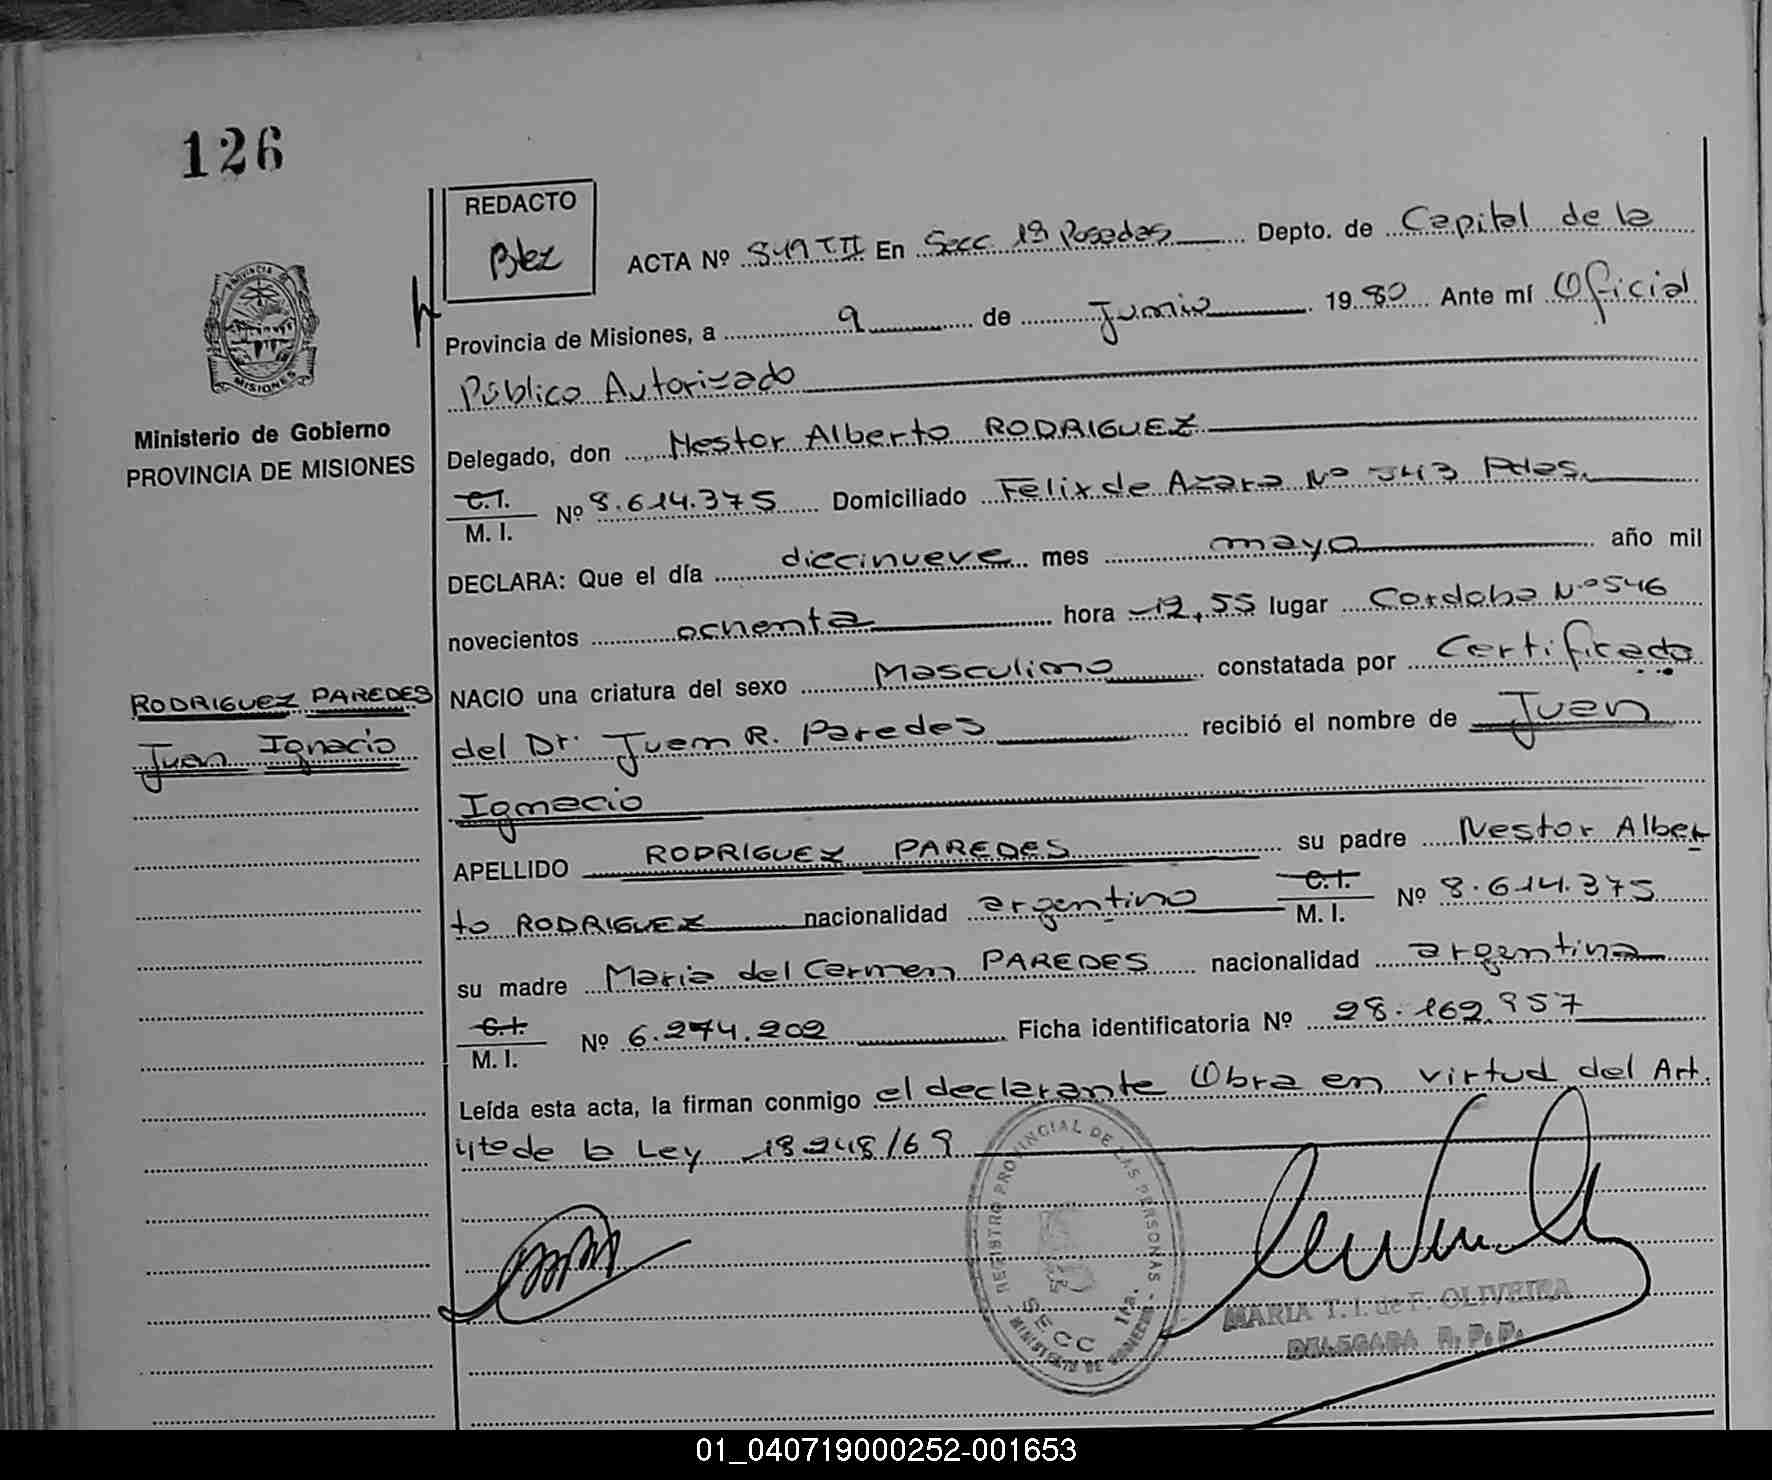 126
REDACTO
Blez
ACTA Nº 549 III En Secc 1ª Posadas Depto. de Capital de la
Provincia de Misiones, a 9 de Junio 1980 Ante mí Oficial
Público Autorizado
PROVINCIA DE
MISIONES
Ministerio de Gobierno
PROVINCIA DE MISIONES
Delegado, don Nestor Alberto RODRIGUEZ
C.I.
M. I. Nº 8.614.375 Domiciliado Felix de Azara Nº 543 Pdas.
DECLARA: Que el día diecinueve mes mayo año mil
novecientos ochenta hora 12,55 lugar Cordoba Nº 546
RODRIGUEZ PAREDES
Juan Ignacio
NACIO una criatura del sexo Masculino constatada por Certificado
del Dr. Juan R. Paredes recibió el nombre de Juan
Ignacio
APELLIDO RODRIGUEZ PAREDES su padre Nestor Alber
to RODRIGUEZ nacionalidad argentino C.I. M. I. Nº 8.614.375
su madre Maria del Carmen PAREDES nacionalidad argentina
C.I.
M. I. Nº 6.274.202 Ficha identificatoria Nº 28.169.957
Leída esta acta, la firman conmigo el declarante Obra en virtud del Art.
4to de la Ley 18248/69
REGISTRO PROVINCIAL DE LAS PERSONAS
MINISTERIO DE GOBIERNO
SECC 1ra.
MARIA T. I. de F. OLIVEIRA
DELEGADA R. P. P.
01_040719000252-001653